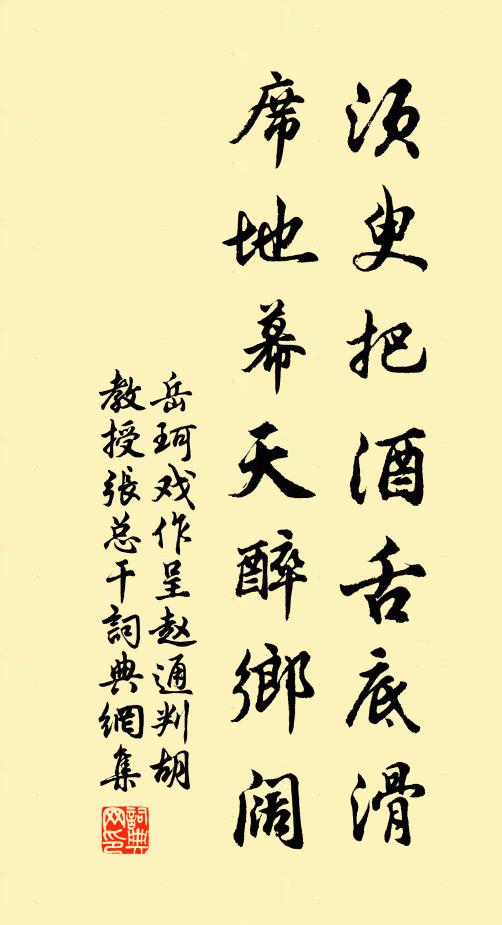 须叟把酒舌底滑
席地幕天醉鄉阔
岳珂戏作呈赵通判胡
教授張总干詞典網集
詞典網印